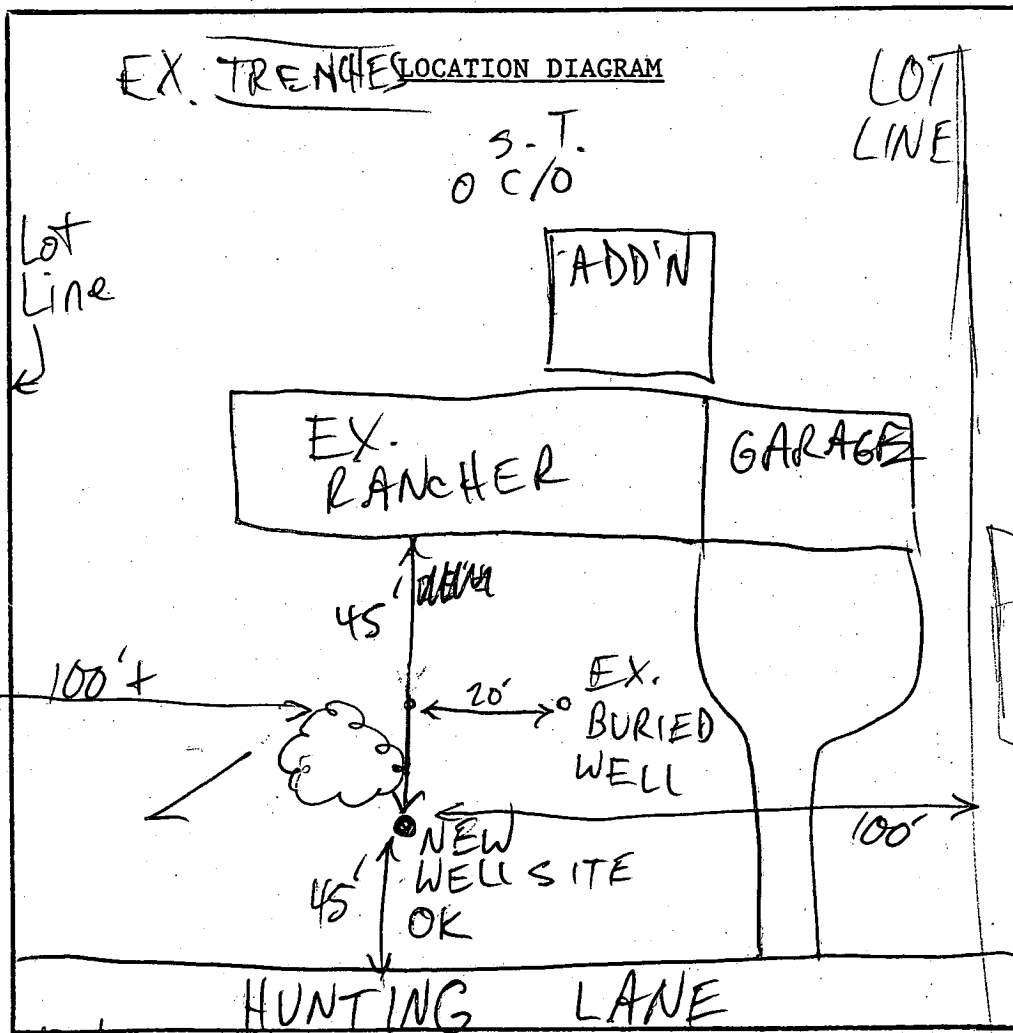 EX. TRENCHES LOCATION DIAGRAM
LOT
LINE
S.T.
O C/O
Lot
Line
ADD'N
EX.
RANCHER
GARAGE
45'
100'+
20'
EX.
BURIED
WELL
100'
NEW
WELL SITE
OK
45'
HUNTING LANE